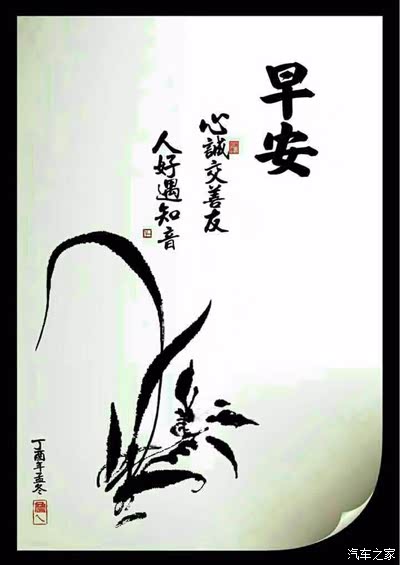 早安
心誠交善友
人好遇知音
丁酉年孟冬
汽车之家